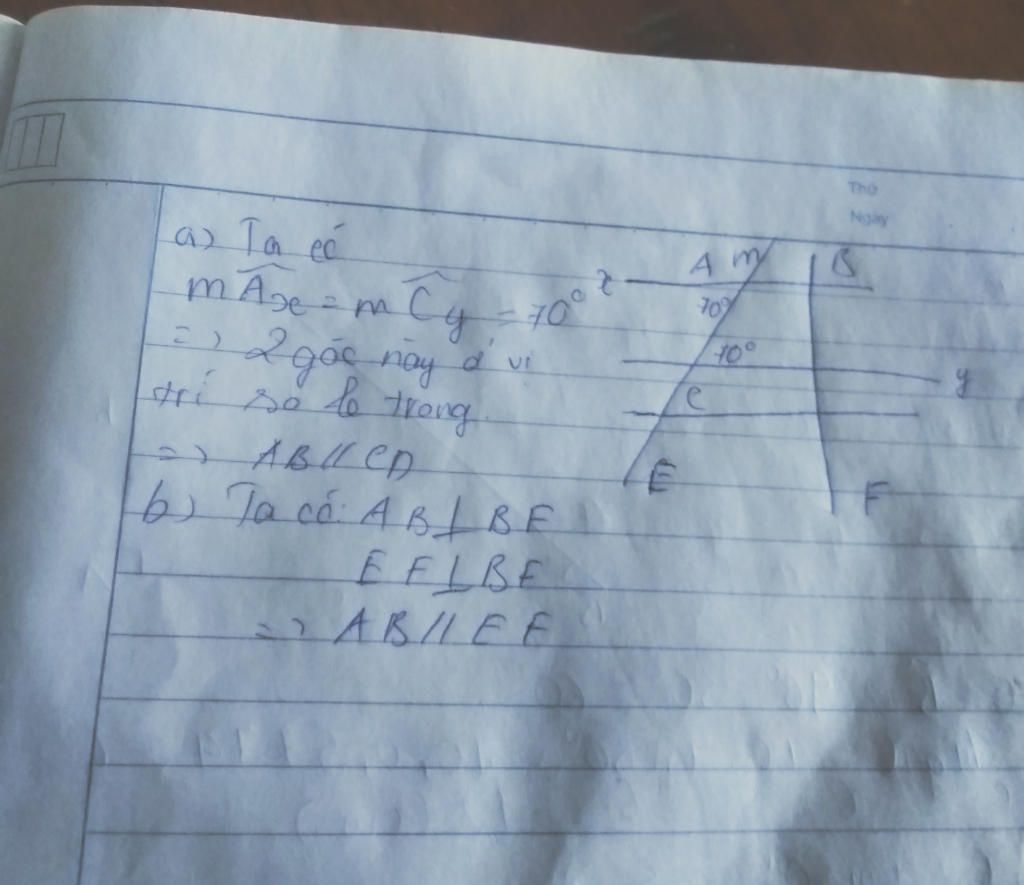 Thứ
Ngày
a) Ta có
mÂx = mĈy = 70°
=> 2 góc này ở vị
trí so le trong
=> AB // CD
b) Ta có: AB ⊥ BF
EF ⊥ BF
=> AB // EF
x A m B
70°
70°
y
C
E F